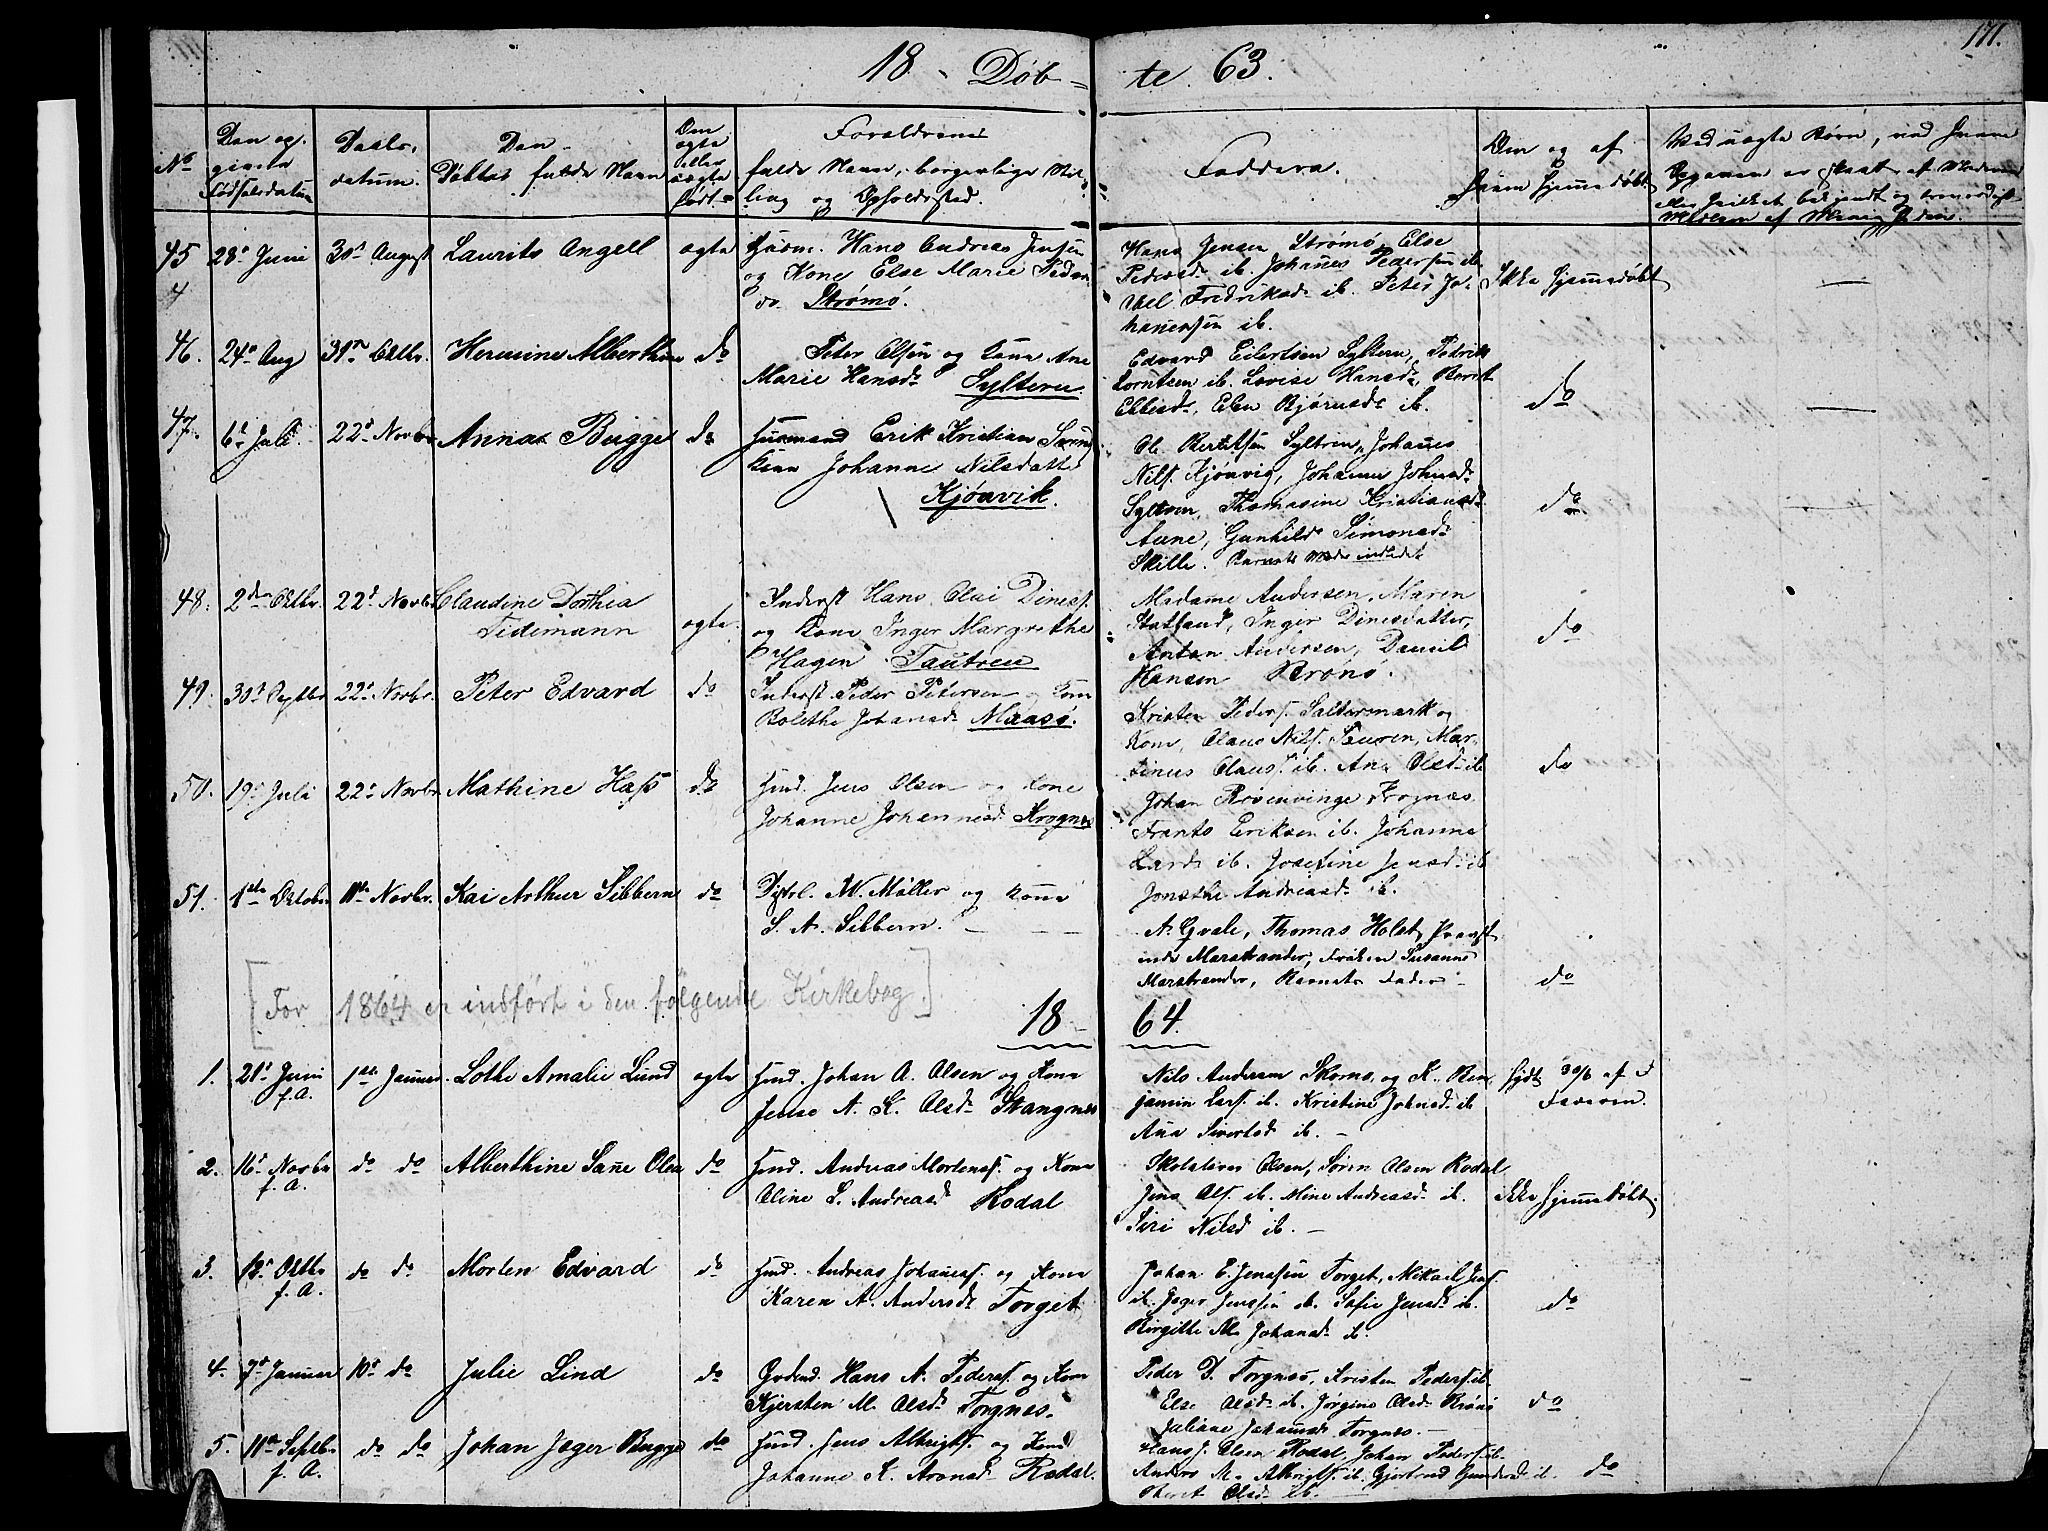 171.
18 - Døb = te. 63.
No
Den op-
givne
Fødselsdatum
Daabs-
datum.
Den
Døbtes fulde Navn
Om
ægte
eller
uægte
født.
Forældrenes
fulde Navn, borgerlige Stil-
ling og Opholdssted.
Faddere.
Om og af
hvem hjemmedøbt
Ved uægte Børn,
45
4
28de Juni
30te August
Laurits Angell
ægte
Huusm. Hans Andreas Jensen
og Kone Else Marie Peder
do Strømø.
Hans Jensen Strømø, Else
Pedersd. ib. Johannes Pedersen ib.
Fredriksd. ib. Peter Jo-
hannessen ib.
Ikke Hjemmedøbt
—
46.
24de Aug
31te Oktbr.
Hermine Alberthine
do
Peter Olsen og Kone Ane
Marie Hansd. Sylteren.
Edvard Eilertsen Sylteren, Fredrik
Lorntsen ib. Lovise Hansd., Berit
Ellisd., Elen Bjørnsd. ib.
do
—
47.
6te Juli
22de Novbr
Anna Bugge
do
Huusmand Erik Kristian
Kone Johanne Nilsdatt
Kjønvik.
Ole Berntsen Sylteren, Johannes
Nils. Kjønvig, Johanna Johnsd.
Sylteren, Thomasine Kristiansd.
Aune, Gunhild Simonsd.
Skille. Barnets Moder indledet
do
—
48.
2den Oktbr.
22de Novbr
Claudine Dorthea
Tidemann
ægte.
Inderst Hans Olai Diness.
og Kone Inger Margrethe
Hagen Tautren
Madame Andersen, Maren
Statland, Inger Dinesdatter,
Anton Andersen, Daniel
Hansen Brønø.
do
49.
30te Septbr
22de Novbr.
Peter Edvard
do
Inderst Peder Petersen og Kone
Bolethe Johansd. Maasø.
Kristen Peders. Saltermark og
Kone, Olaus Nils. Mar-
tinus Olaus. ib. Ane Olsd. ib
do
50.
19de Juli
22de Novbr
Mathine Hass
do
Hmd. Jens Olsen og Kone
Johanne Johannesd. Krognes
Johan Rosenvinge Krognes
Frants Eriksen ib. Johanna
Larsd. ib. Josefine Jensd. ib
Andreasd. ib.
51.
1ste Oktobr
11te Novbr.
Kai Arthur Sibbern
do
W. Møller og Kone
S. A. Sibbern. — — —
A. Qvale, Thomas Holst, Provst-
inde Marstrander, Frøken Susanne
Marstrander, Barnets Fader -
do
[For 1864 er indført i den følgende Kirkebog.]
18 - 64.
1.
21de Juni
f. A.
1ste Januar
Lothe Amalie Lund
ægte
Hmd. Johan A. Olsen og Kone
Jense A. K. Olsd. Stangnes
Nils Andersen Skomo, og K. Ben-
jamin Lars. ib. Kristine Johnsd. ib
Ana Sivertsd. ib. —
Hjdt 30/6 af
2.
16de Novbr
f. A.
do do
Alberthine Sanne Olsen
do
Hmd. Andreas Mortenss. og Kone
Oline S. Andreasd. Rodal
Olsen, Søren Olsen Rodal,
Jens Ols. ib. Mine Andreasd. ib.
Siri Nilsd ib. —
Ikke Hjemmedøbt.
3.
12te Oktbr
f. A.
do do
Morten Edvard
do
Hmd. Andreas Johannes. og Kone
Karen A. Andersd. Torget
Johan E. Jenssen Torget, Mikael Jens.
ib. Jæger Jenssen ib. Sofie Jensd. ib.
Birgitte M. Johansd. ib.
do
4.
7de Januar
10de do
Julie Lind
do
Gaardmd. Hans A. Peders. og Kone
Kjersten M. Olsd. Torgnes.
Peder D. Torgnes, Kristen Peders. ib.
Else Olsd. ib. Jørgine Olsd. Brønø
Juliane Johannesd. Torgnes. —
do
5.
11te Septbr
f. A.
do do
Johan Jæger Bugge
do
Hmd. Jens Albrigts. og Kone
Johanne K. Aronsd. Rodal.
Hans J. Olsen Rodal, Johan Peders. ib.
Anders M. Albrigts. ib. Gjertrud Gundersd. ib.
Beret Olsd. ib. —
do